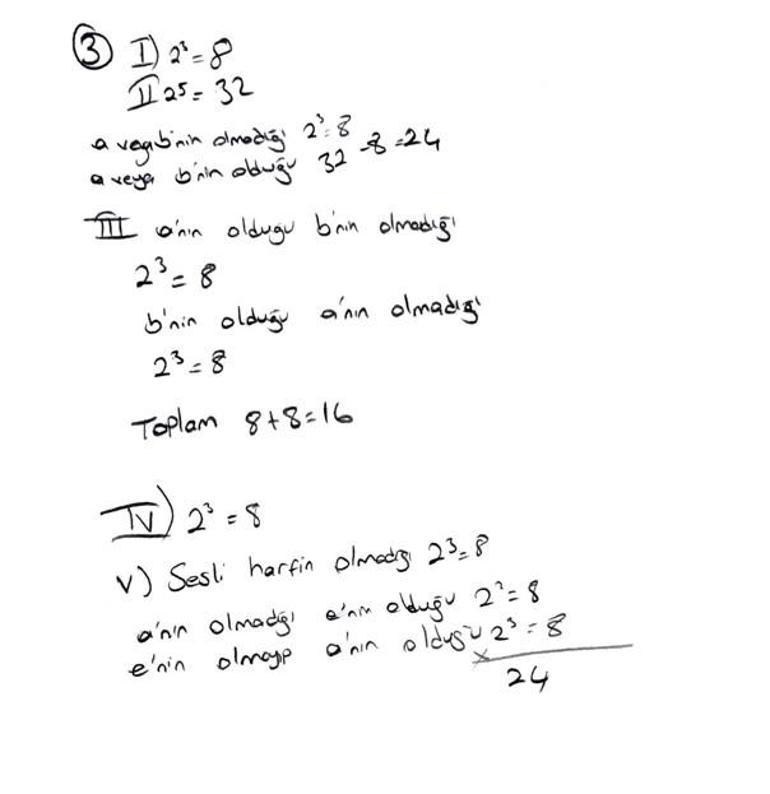 ③ I) 2³ = 8
II 2⁵ = 32
a veya b'nin olmadığı 2³ = 8
a veya b'nin olduğu 32 - 8 = 24
III a'nın olduğu b'nin olmadığı
2³ = 8
b'nin olduğu a'nın olmadığı
2³ = 8
Toplam 8 + 8 = 16
IV) 2³ = 8
V) Sesli harfin olmadığı 2³ = 8
a'nın olmadığı e'nin olduğu 2³ = 8
e'nin olmayıp a'nın olduğu 2³ = 8
x
24